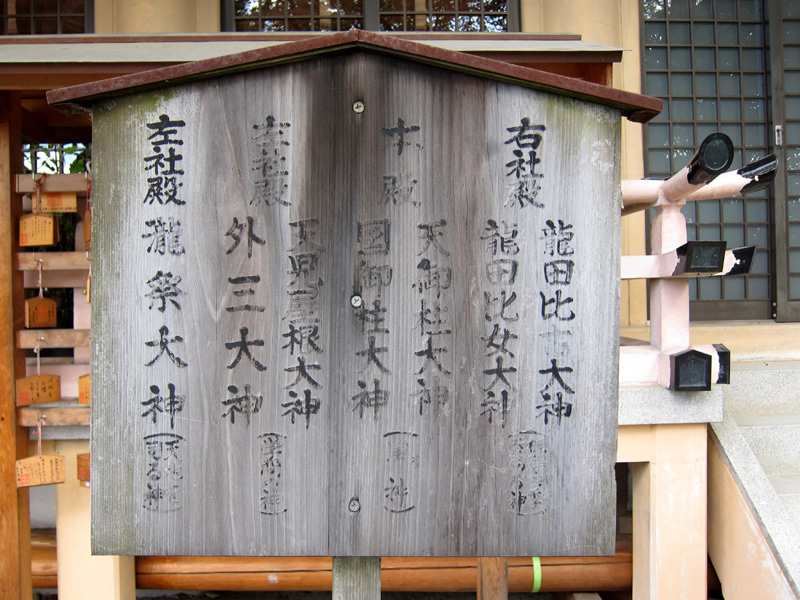 右社殿
龍田比古大神
龍田比女大神
本殿
天御柱大神
国御柱大神
左社殿
天児屋根大神
外三大神
左社殿
瀧祭大神